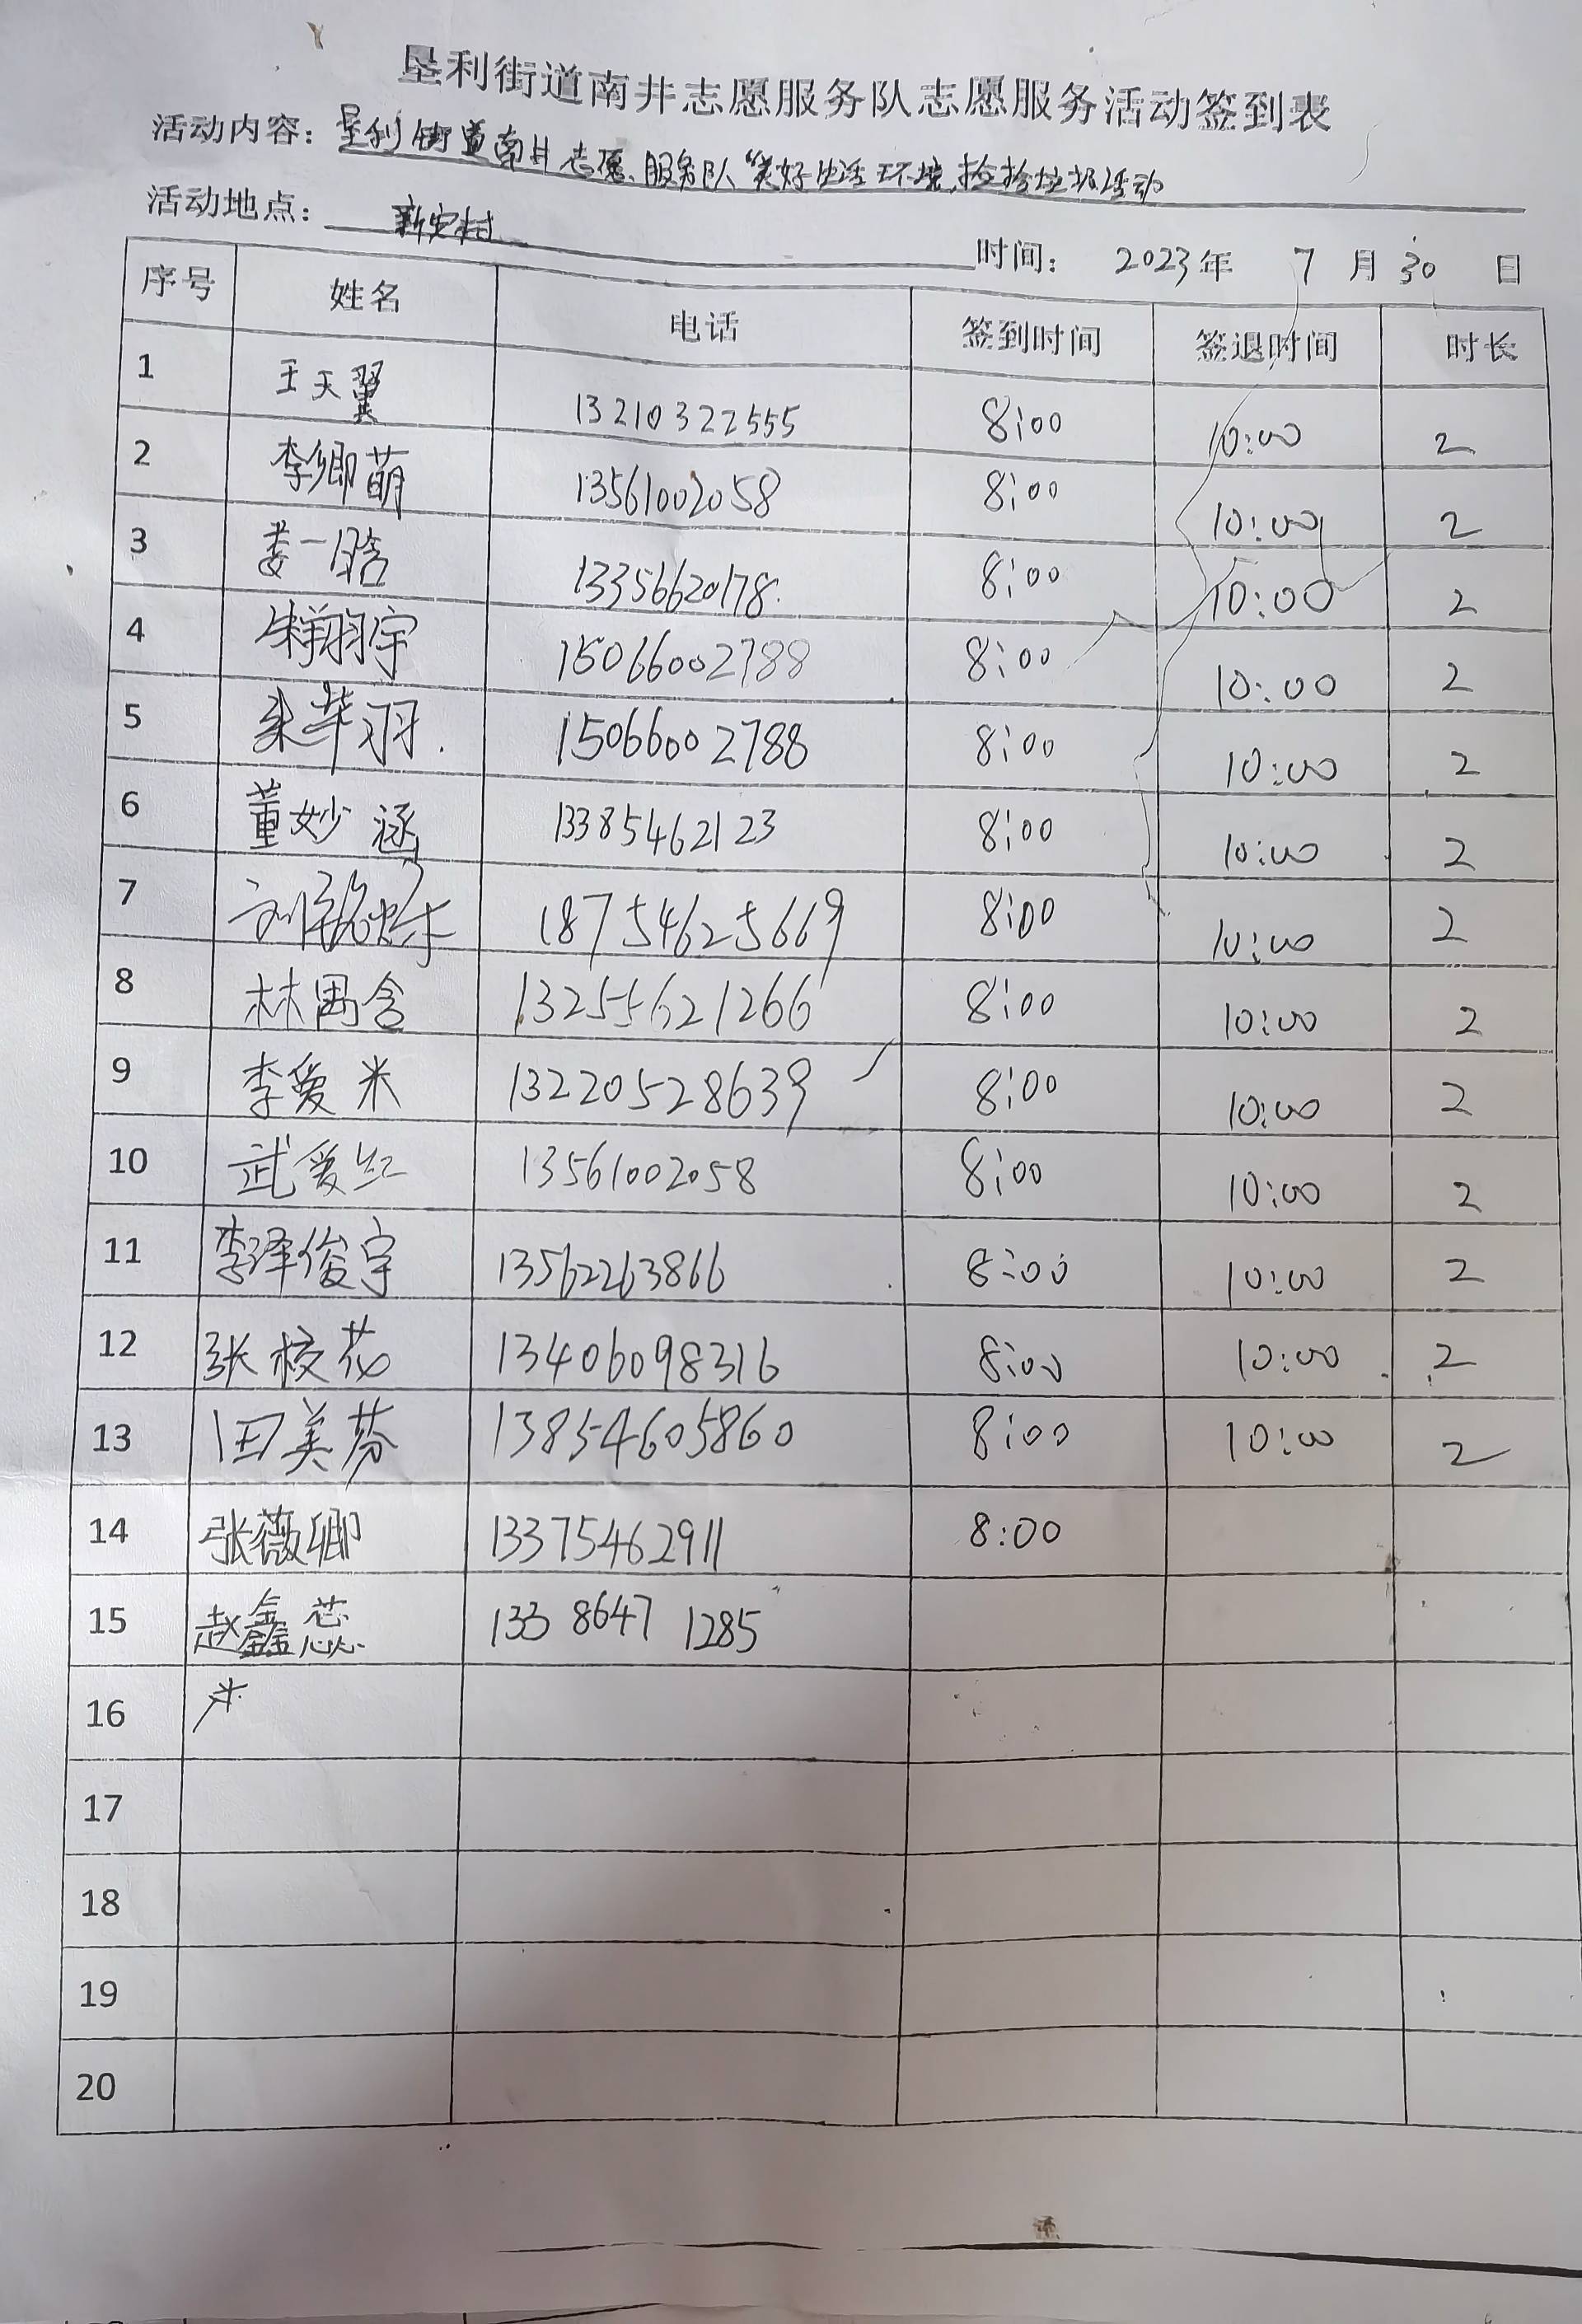 垦利街道南井志愿服务队志愿服务活动签到表
活动内容：垦利街道南井志愿服务队“美好生活环境，捡拾垃圾活动
活动地点：新安村 时间： 2023年 7 月 30 日
序号 姓名 电话 签到时间 签退时间 时长
1 王天翼 13210322555 8:00 10:00 2
2 李卿萌 13561002058 8:00 10:00 2
3 娄一晗 13356620178 8:00 10:00 2
4 朱翔宇 15066002788 8:00 10:00 2
5 羽 15066002788 8:00 10:00 2
6 董妙涵 13385462123 8:00 10:00 2
7 刘 18754625669 8:00 10:00 2
8 林禺含 13255621266 8:00 10:00 2
9 李爱米 13220528639 8:00 10:00 2
10 武爱红 13561002058 8:00 10:00 2
11 李泽俊宇 13562263866 8:00 10:00 2
12 张校花 13406098316 8:00 10:00 2
13 田美芬 13854605860 8:00 10:00 2
14 张薇卿 13375462911 8:00
15 赵鑫蕊 133 8647 1285
16
17
18
19
20